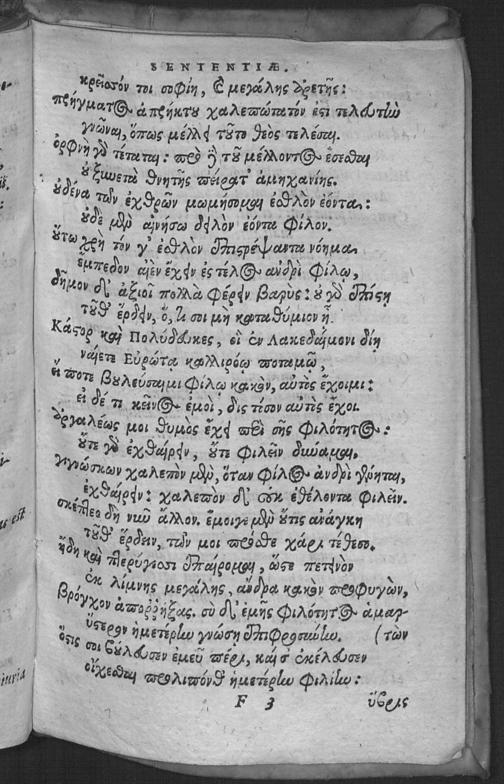 SENTENTIÆ.
κρεῖσσόν τοι σοφίη, καὶ μεγάλης ἀρετῆς:
πρήγματος ἀπρήκτου χαλεπώτατόν ἐστι τελευτὴν
γνῶναι, ὅπως μέλλει τοῦτο θεὸς τελέσαι.
ὀρφνὴ γὰρ τέταται: πρὸ δὲ τοῦ μέλλοντος ἔσεσθαι
οὐ ξυνετὰ θνητῆς πείρατ' ἀμηχανίης.
οὐδένα τῶν ἐχθρῶν μωμήσομαι ἐσθλὸν ἐόντα:
οὐδὲ μὲν αἰνήσω δειλὸν ἐόντα φίλον.
οὕτω χρὴ τόν γ' ἐσθλὸν ἐπιστρέψαντα νόημα
ἔμπεδον αἰὲν ἔχειν ἐς τέλος ἀνδρὶ φίλῳ,
δῆμον δ' ἀξιοῖ πολλὰ φέρειν βαρύς: οὐ γὰρ ἐπίστῃ
τοῦθ' ἔρδειν, ὅ, τι σοι μὴ καταθύμιον ᾖ.
Κάστορ καὶ Πολύδευκες, οἳ ἐν Λακεδαίμονι δίῃ
ναίετε Εὐρώτα καλλιρόῳ ποταμῷ,
εἴ ποτε βουλεύσαιμι φίλῳ κακὸν, αὐτὸς ἔχοιμι:
εἰ δέ τι κεῖνος ἐμοὶ, δὶς τόσον αὐτὸς ἔχοι.
ἀργαλέως μοι θυμὸς ἔχει περὶ σῆς φιλότητος:
οὔτε γὰρ ἐχθαίρειν, οὔτε φιλεῖν δύναμαι.
γινώσκων χαλεπὸν μὲν, ὅταν φίλος ἀνδρὶ γένηται,
ἐχθαίρειν: χαλεπὸν δ' οὐκ ἐθέλοντα φιλεῖν.
σκέπτεο δὴ νῦν ἄλλον. ἔμοιγε μὲν οὔτις ἀνάγκη
τοῦθ' ἔρδειν, τῶν μοι πρόσθε χάριν τίθεσο.
ἤδη καὶ πτερύγεσσι ἐπαίρομαι, ὥστε πετεινὸν
ἐκ λίμνης μεγάλης, ἄνδρα κακὸν προφυγὼν,
βρόγχον ἀποῤῥήξας. σὺ δ' ἐμῆς φιλότητος ἁμαρ
ὕστερον ἡμετέρην γνώσῃ ἐπιφροσύνην. (τὼν
ὅστις σοι βούλευσεν ἐμεῦ πέρι, καί σ' ἐκέλευσεν
οἴχεσθαι προλιπόνθ' ἡμετέρην φιλίην:
F 3 ὕβρις